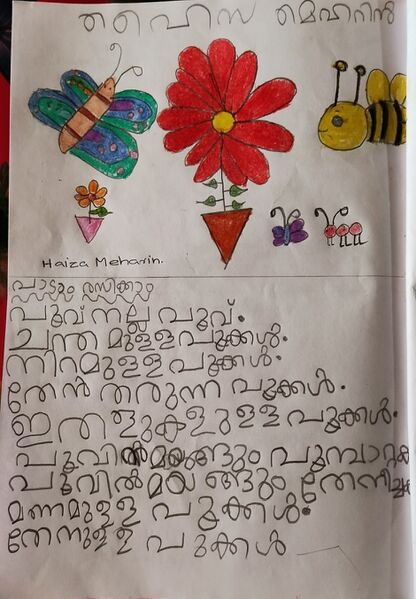 ഹൈസ മെഹറിൻ
Haiza Meharin.
പാടാം രസിക്കാം
പൂവ് നല്ല പൂവ്.
ചന്തമുള്ള പൂക്കൾ.
നിറമുള്ള പൂക്കൾ.
തേൻ തരുന്ന പൂക്കൾ.
ഇതളുകളുള്ള പൂക്കൾ.
പൂവിൽ
പൂവിൽ
മണമുള്ള പൂക്കൾ.
തേനുള്ള പൂക്കൾ